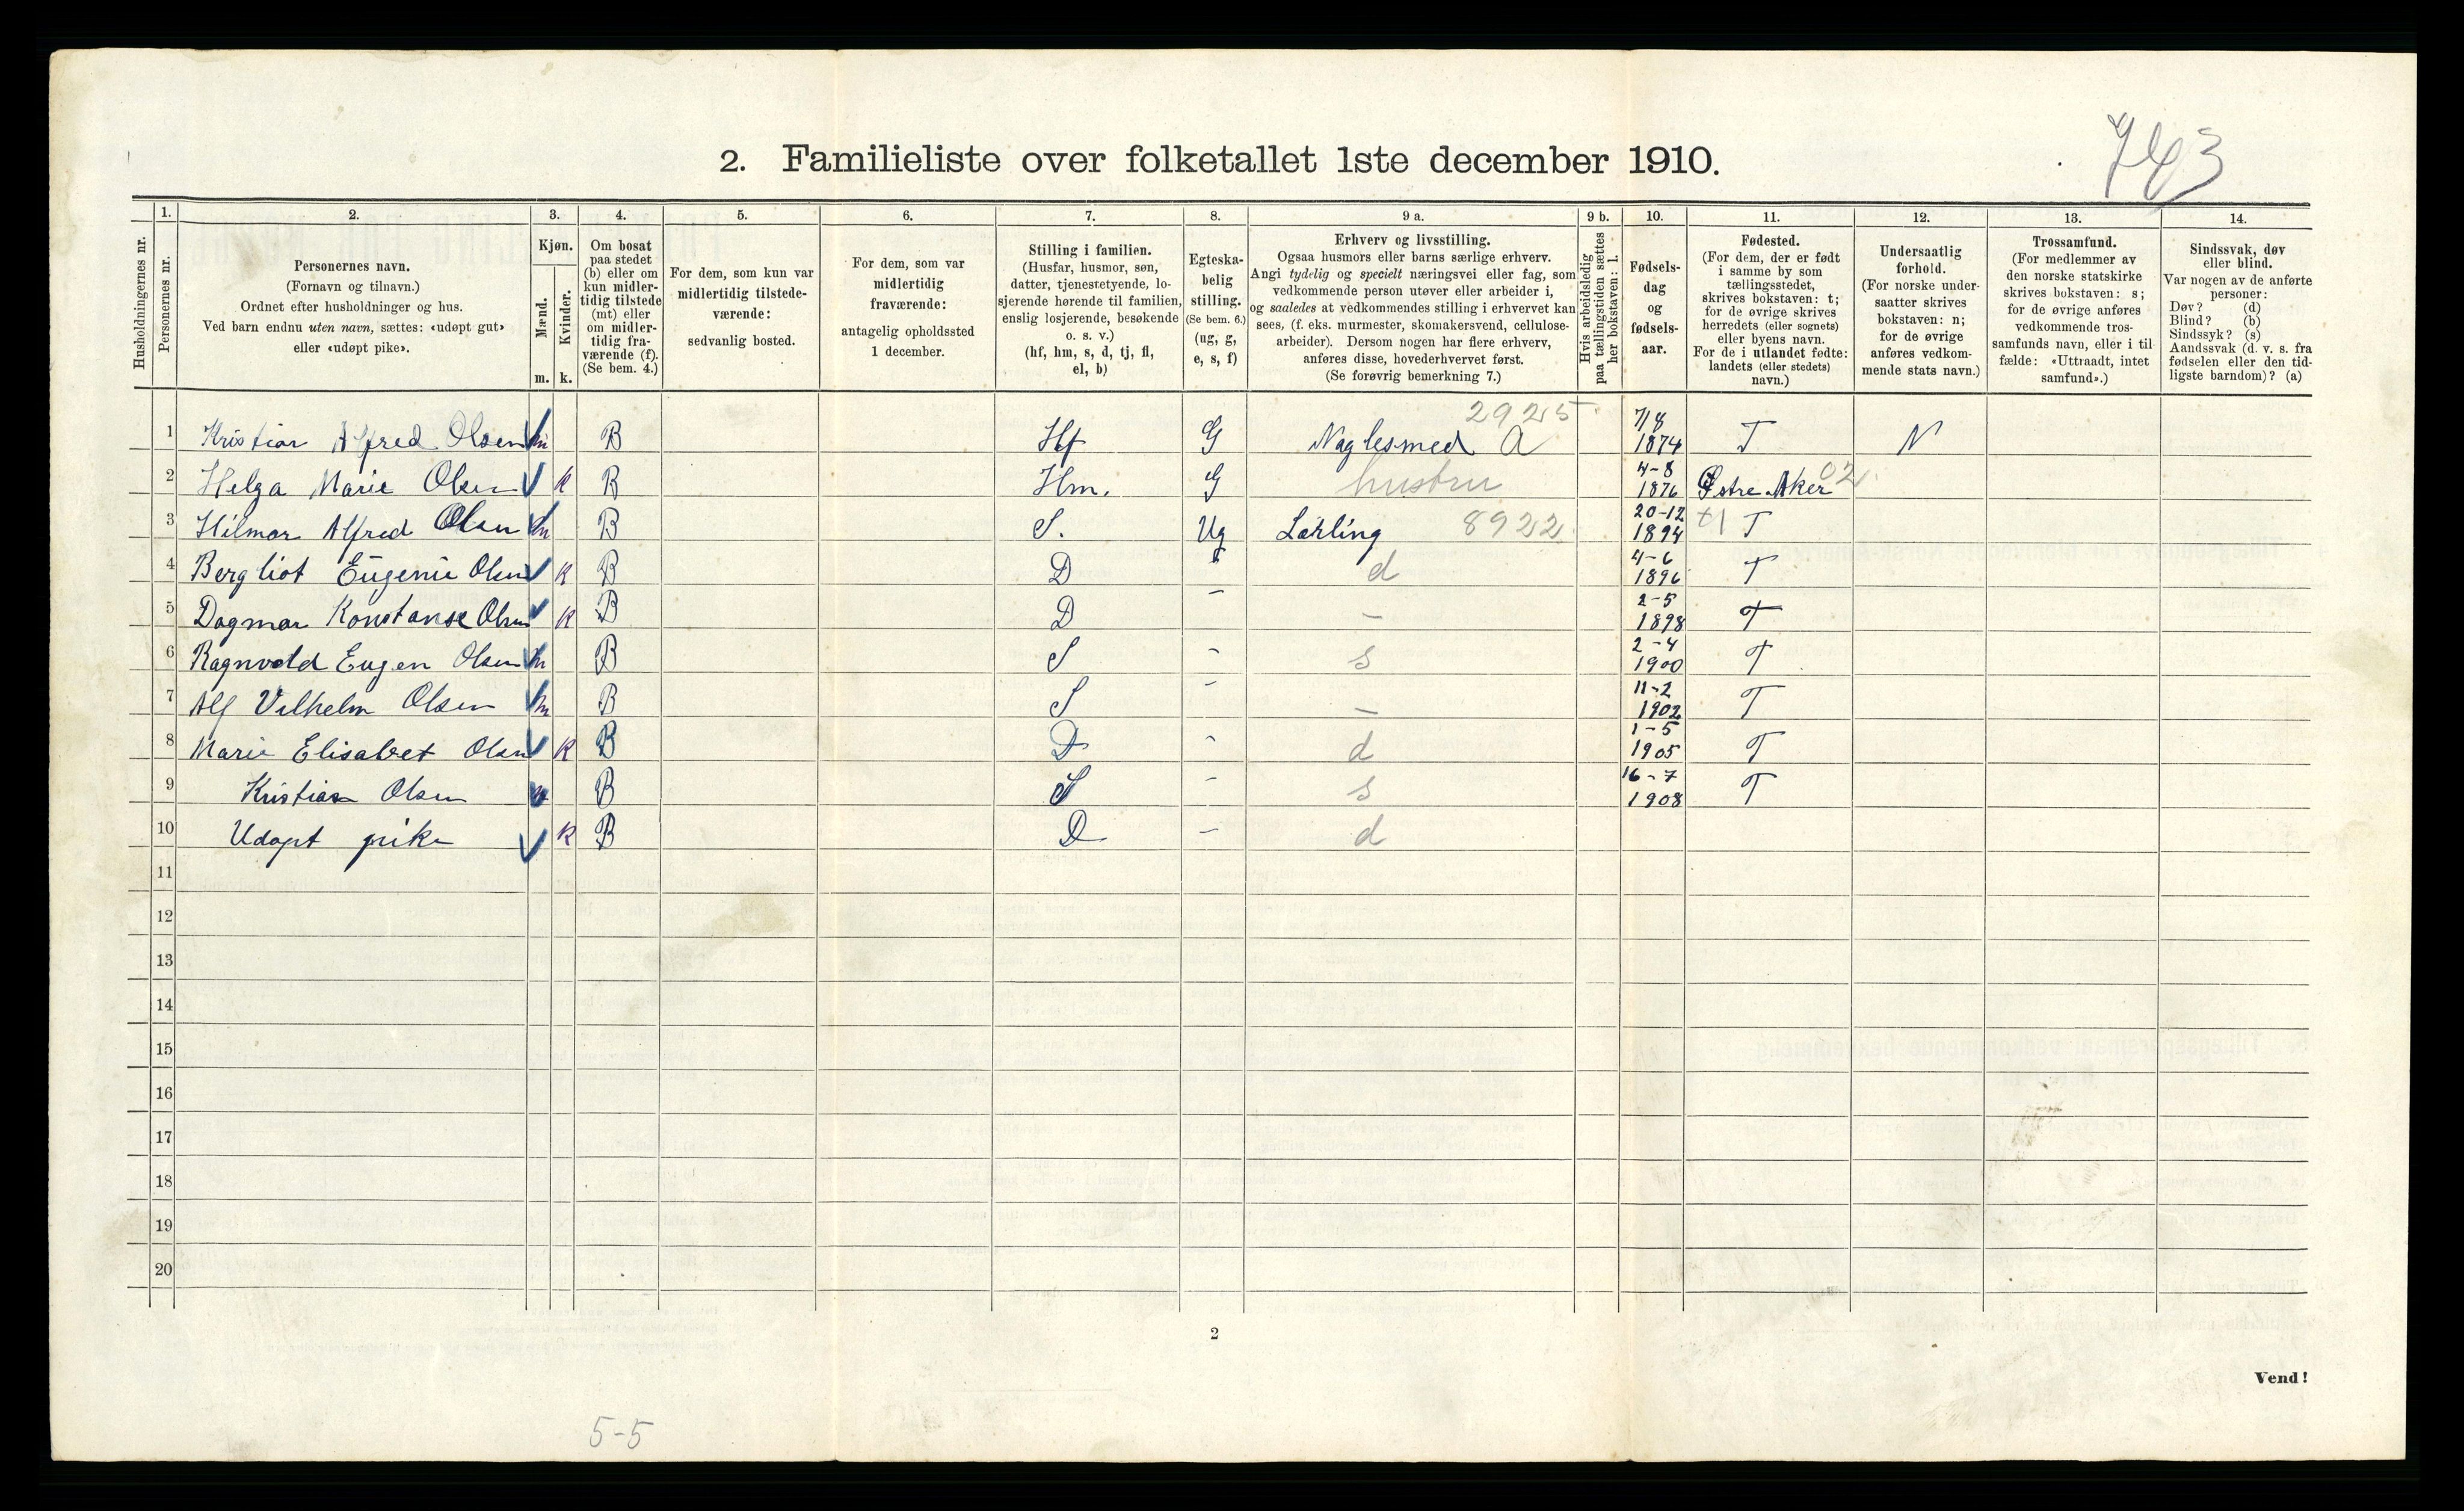 743
2. Familieliste over folketallet 1ste december 1910.
Husholdningernes nr.
1.
Personernes nr.
2.
Personernes navn.
(Fornavn og tilnavn.)
Ordnet efter husholdninger og hus.
Ved barn endnu uten navn, sættes: «udøpt gut»
eller «udøpt pike».
3.
Kjøn.
Mænd.
Kvinder.
m. k.
4.
Om bosat
paa stedet
(b) eller om
kun midler-
tidig tilstede
(mt) eller
om midler-
tidig fra-
værende (f).
(Se bem. 4.)
5.
For dem, som kun var
midlertidig tilstede-
værende:
sedvanlig bosted.
6.
For dem, som var
midlertidig
fraværende:
antagelig opholdssted
1 december.
7.
Stilling i familien.
(Husfar, husmor, søn,
datter, tjenestetyende, lo-
sjerende hørende til familien,
enslig losjerende, besøkende
o. s. v.)
(hf, hm, s, d, tj, fl,
el, b)
8.
Egteska-
belig
stilling.
(Se bem. 6.)
(ug, g,
e, s, f)
9 a.
Erhverv og livsstilling.
Ogsaa husmors eller barns særlige erhverv.
Angi tydelig og specielt næringsvei eller fag, som
vedkommende person utøver eller arbeider i,
og saaledes at vedkommendes stilling i erhvervet kan
sees, (f. eks. murmester, skomakersvend, cellulose-
arbeider). Dersom nogen har flere erhverv,
anføres disse, hovederhvervet først.
(Se forøvrig bemerkning 7.)
9 b.
Hvis arbeidsledig
paa tællingstiden sættes
her bokstaven: l.
10.
Fødsels-
dag
og
fødsels-
aar.
11.
Fødested.
(For dem, der er født
i samme by som
tællingsstedet,
skrives bokstaven: t;
for de øvrige skrives
herredets (eller sognets)
eller byens navn.
For de i utlandet fødte:
landets (eller stedets)
navn.)
12.
Undersaatlig
forhold.
(For norske under-
saatter skrives
bokstaven: n;
for de øvrige
anføres vedkom-
mende stats navn.)
13.
Trossamfund.
(For medlemmer av
den norske statskirke
skrives bokstaven: s;
for de øvrige anføres
vedkommende tros-
samfunds navn, eller i til-
fælde: «Uttraadt, intet
samfund».)
14.
Sindssvak, døv
eller blind.
Var nogen av de anførte
personer:
Døv? (d)
Blind? (b)
Sindssyk? (s)
Aandssvak (d. v. s. fra
fødselen eller den tid-
ligste barndom)? (a)
1 Kristian Alfred Olsen m B Hf G Naglesmed A 2925 7/8 1874 T N
2 Helga Marie Olsen k B Hm. G hustru 4-8 1876 Østre Aker 02
3 Hilmar Alfred Olsen m B S. Ug Lærling 8922 20-12 1894 T
4 Bergliot Eugenie Olsen k B D d 4-6 1896 T
5 Dagmar Konstanse Olsen k B D - - 2-5 1898 T
6 Ragnvald Eugen Olsen m B S - s 2-4 1900 T
7 Alf Vilhelm Olsen m B S - - 11-2 1902 T
8 Marie Elisabet Olsen k B D - d 1-5 1905 T
9 Kristian Olsen m B S - s 16-7 1908 T
10 Udøpt pike k B D - d
11
12
13
14
15
16
17
18
19
20
2
Vend!
5-5